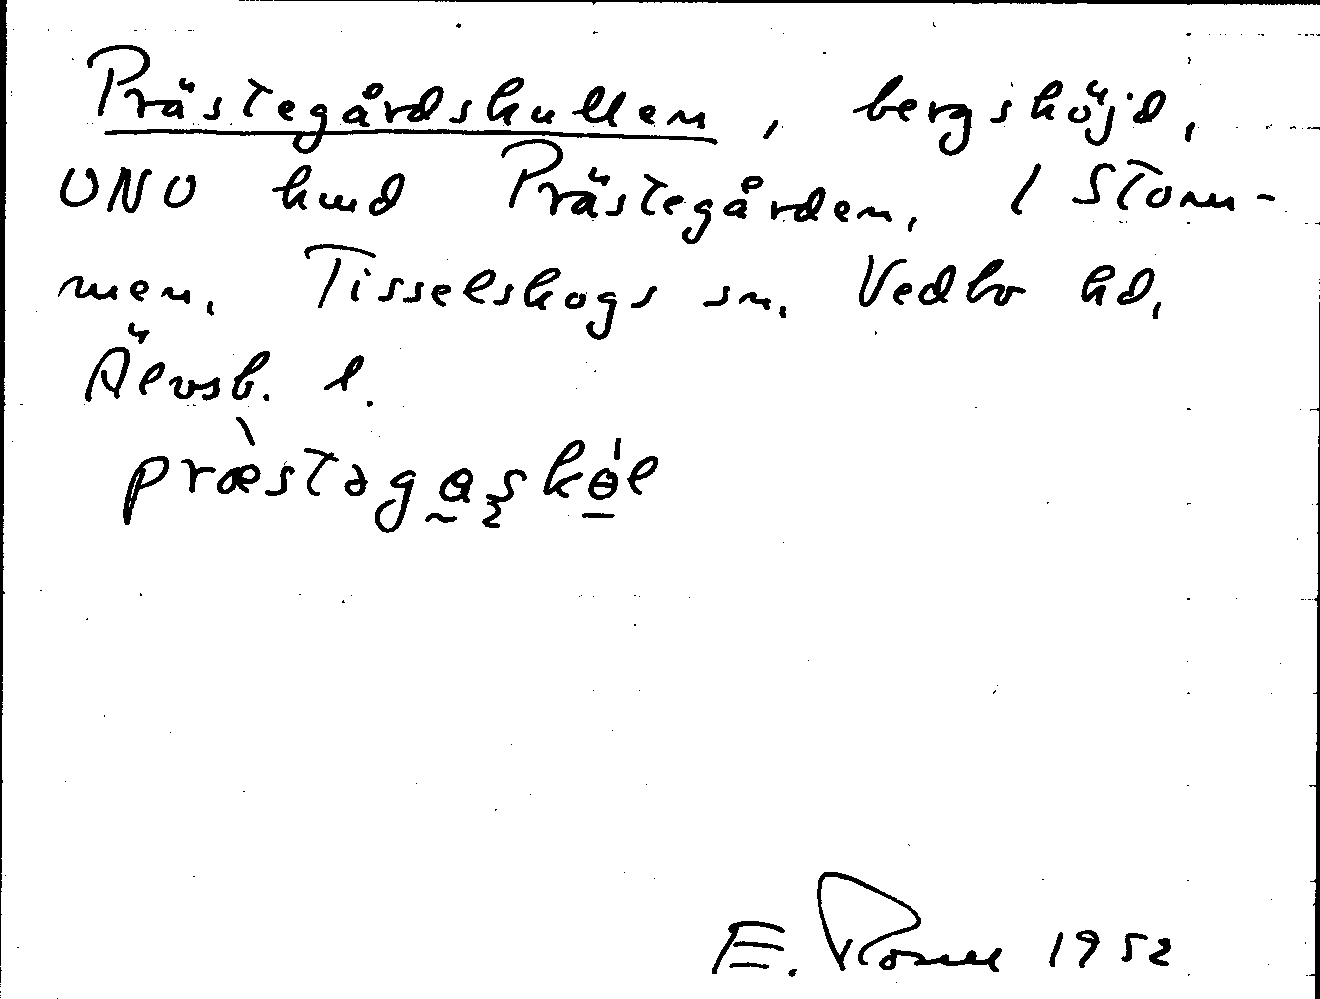 Prästegårdskullen, bergshöjd,
ONO hmd Prästegården, 1 Stom-
men, Tisselskogs sn, Vedbo hd,
Älvsb. l.
præ̀stəga̰ʂkө̠́l
E. 1952